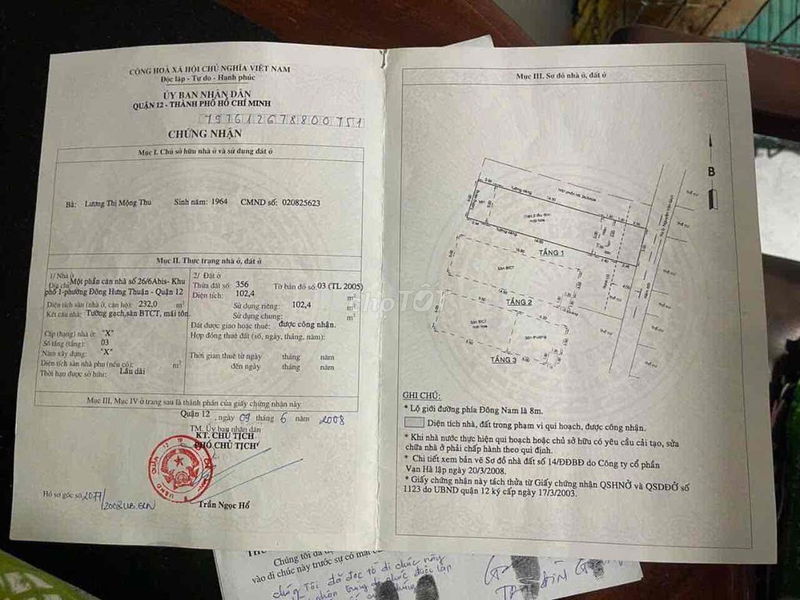 CỘNG HOÀ XÃ HỘI CHỦ NGHĨA VIỆT NAM
Độc lập - Tự do - Hạnh phúc
ỦY BAN NHÂN DÂN
QUẬN 12 - THÀNH PHỐ HỒ CHÍ MINH
797612678800751
CHỨNG NHẬN
Mục I. Chủ sở hữu nhà ở và sử dụng đất ở
Bà: Lương Thị Mộng Thu Sinh năm: 1964 CMND số: 020825623
Mục II. Thực trạng nhà ở, đất ở
1/ Nhà ở
Địa chỉ Một phần căn nhà số 26/6Abis- Khu
phố 1-phường Đông Hưng Thuận - Quận 12
Diện tích sàn (nhà ở, căn hộ): 232,0 m²
Kết cấu nhà: Tường gạch,sàn BTCT, mái tôn.
Cấp (hạng) nhà ở: "X"
Số tầng (tầng): 03
Năm xây dựng: "X"
Diện tích sàn nhà phụ (nếu có): m²
Thời hạn được sở hữu: Lâu dài
2/ Đất ở
Thửa đất số: 356 Tờ bản đồ số: 03 (TL 2005)
Diện tích: 102,4 m²
Sử dụng riêng: 102,4 m²
Sử dụng chung: m²
Đất được giao hoặc thuê: được công nhận.
Hợp đồng thuê đất (số, ngày, tháng, năm):
Thời gian thuê từ ngày tháng năm
đến ngày tháng năm
Mục III, Mục IV ở trang sau là thành phần của giấy chứng nhận này
Quận 12, ngày 09 tháng 6 năm 2008
TM. Ủy ban nhân dân
KT. CHỦ TỊCH
PHÓ CHỦ TỊCH
Trần Ngọc Hổ
Hồ sơ gốc số 2077
/2008.UB.GCN
Mục III. Sơ đồ nhà ở, đất ở
B
TẦNG 1
SÀN BTCT
TẦNG 2
SÀN BTCT
TẦNG 3
GHI CHÚ:
* Lộ giới đường phía Đông Nam là 8m.
Diện tích nhà, đất trong phạm vi qui hoạch, được công nhận.
* Khi nhà nước thực hiện qui hoạch hoặc chủ sở hữu có yêu cầu cải tạo, sửa
chữa nhà ở phải chấp hành theo qui định.
* Chi tiết xem bản vẽ Sơ đồ nhà đất số 14/ĐĐBĐ do Công ty cổ phần
Vạn Hà lập ngày 20/3/2008.
* Giấy chứng nhận này tách thửa từ Giấy chứng nhận QSHNỞ và QSDĐỞ số
1123 do UBND quận 12 ký cấp ngày 17/3/2003.
Chợ TỐT
Chúng tôi đã đ
vào di chúc này trước sự có mặt c
chúng Tôi đã đọc tờ di chúc này